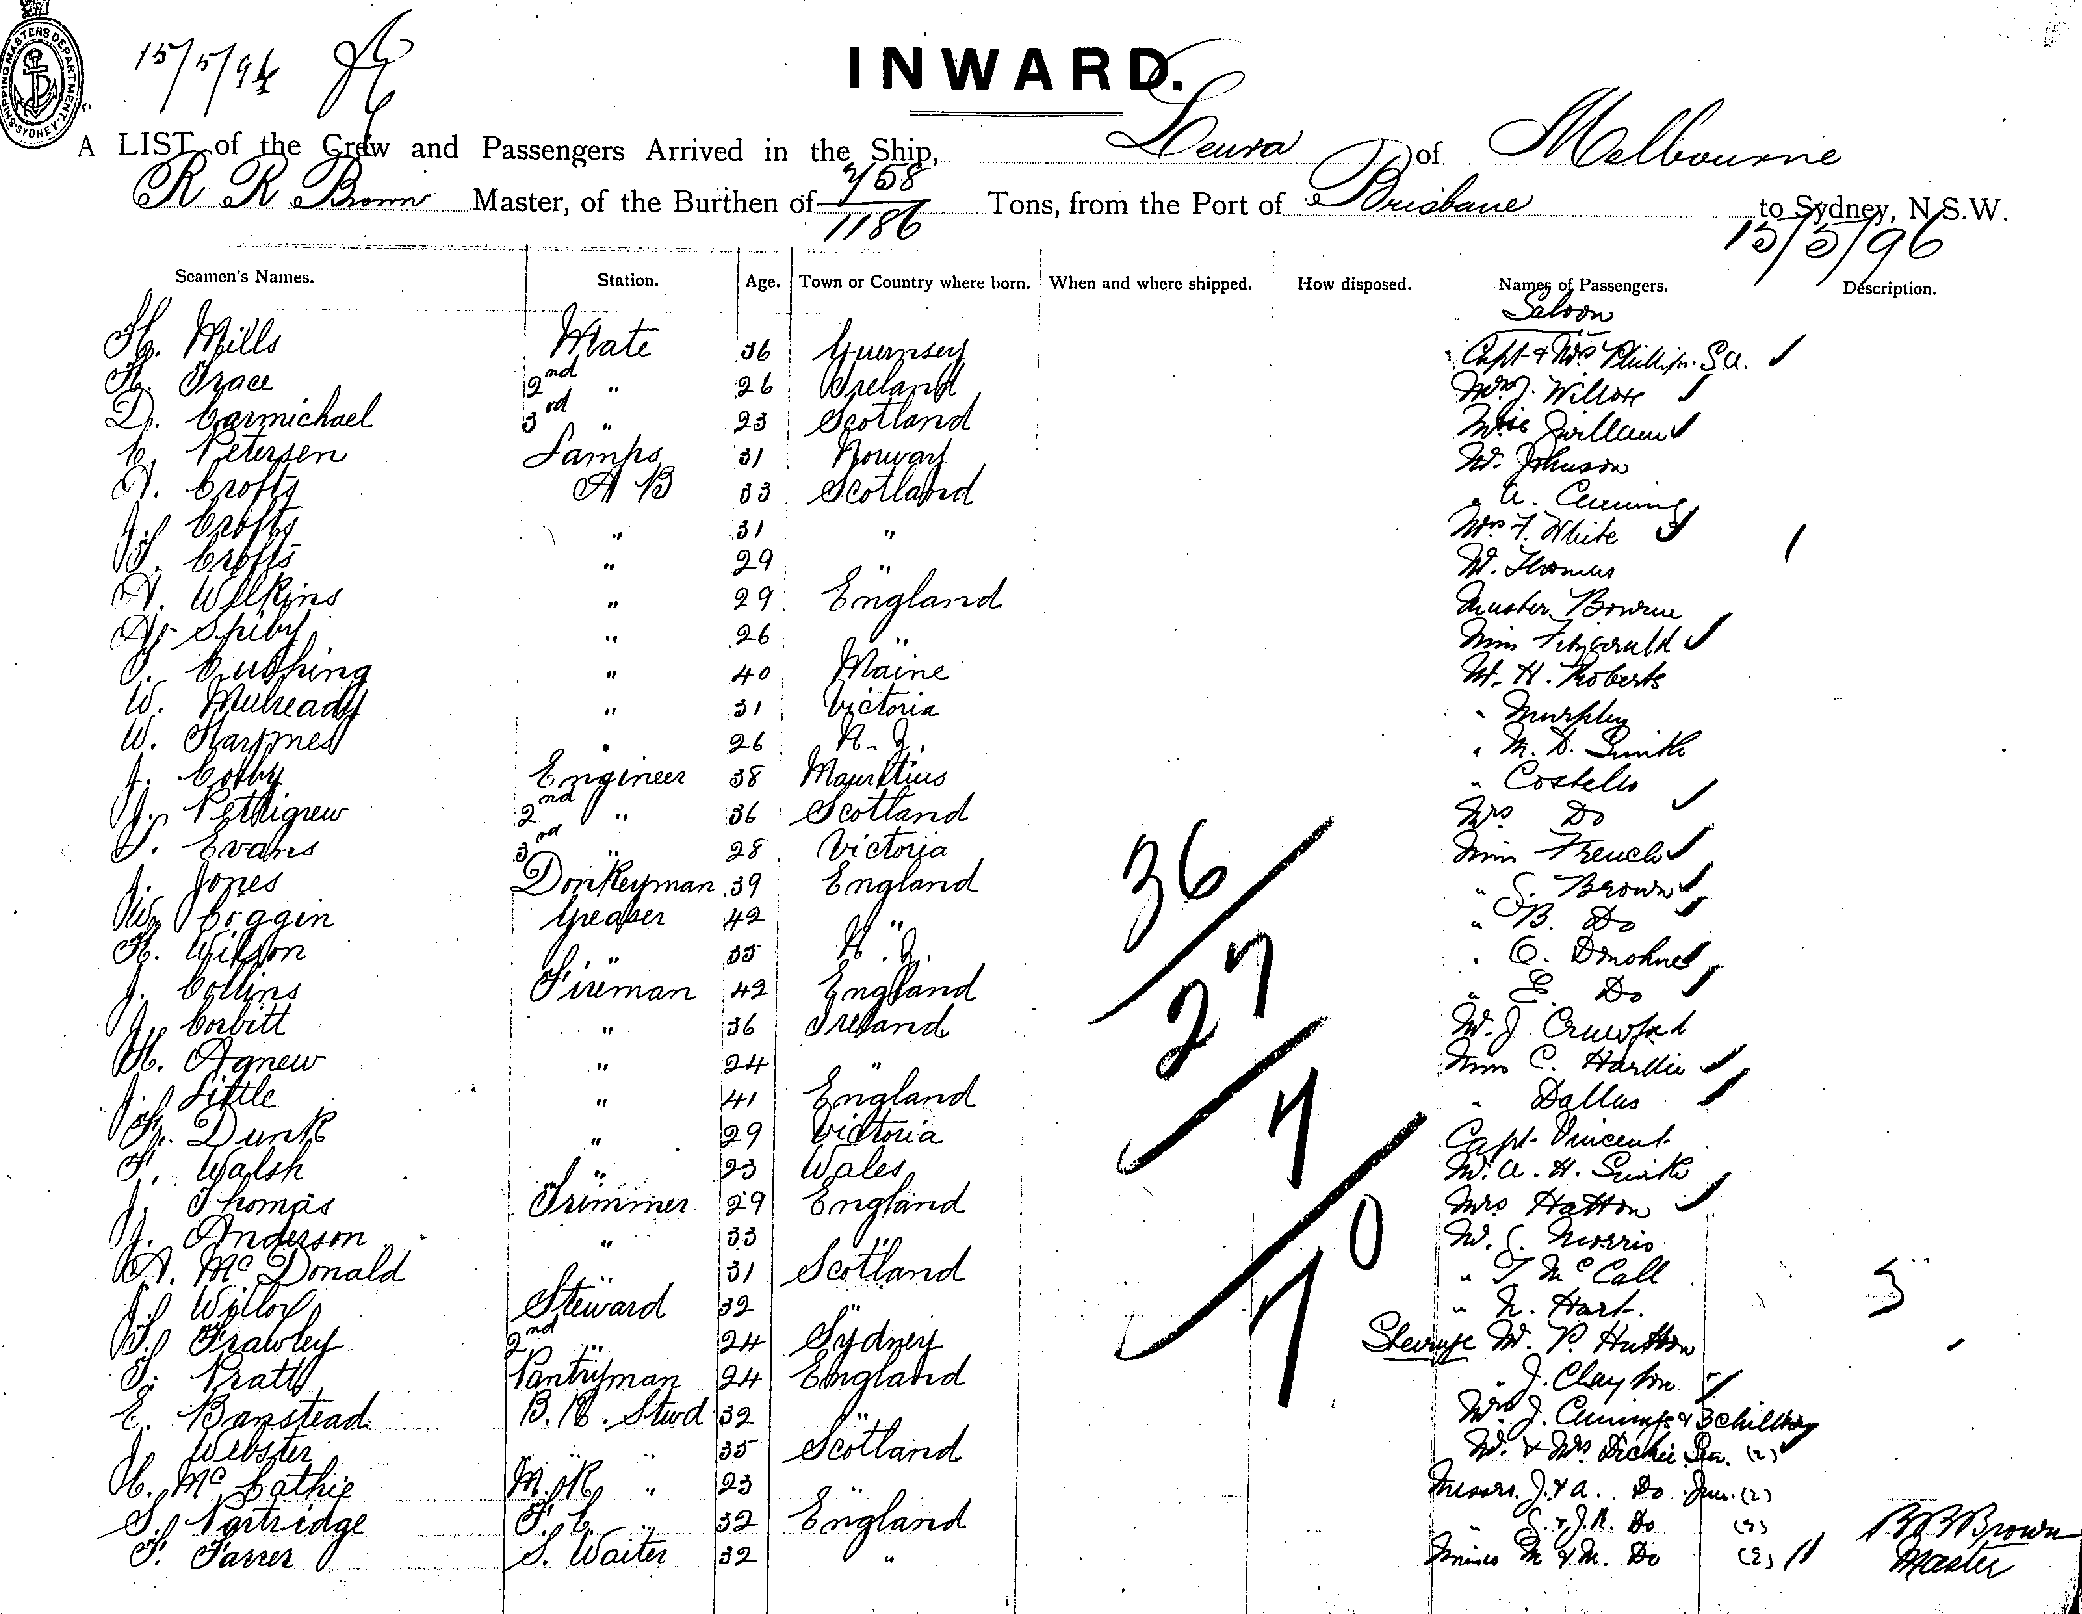 SHIPPING MASTERS DEPARTMENT. SYDNEY
15/5/96
INWARD.
A LIST of the Crew and Passengers Arrived in the Ship, Leura of Melbourne
R R Brown Master, of the Burthen of 758/1186 Tons, from the Port of Brisbane to Sydney, N.S.W.
15/5/96
Seamen's Names. Station. Age. Town or Country where born. When and where shipped. How disposed. Names of Passengers. Description.
Saloon
H. Mills Mate 36 Guernsey Capt & Mrs Phillips. S.A.
Trace 2nd " 26 Ireland Willox
D. Carmichael 3rd " 23 Scotland
C. Petersen Lamps 31 Norway Mr. Johnson
A. Crofts A B 33 Scotland " A. Cuming
J. Crofts " 31 " Mrs F. White
Crofts " 29 " Mr. Thomas
A. Wilkins " 29 England Master Bourne
Spiby " 26 " Miss Fitzgerald
Cushing " 40 Maine Mr. H. Roberts
W. Mulready " 31 Victoria " Murphy
W. " 26 N. Z. " M. D.
J. Colby Engineer 38 Mauritius " Costello
J. Pettigrew 2nd " 36 Scotland Mrs Do
Evans 3rd " 28 Victoria Miss French
J. Jones Donkeyman 39 England " Brown
W. Coggin Greaser 42 " " B. Do
Wilson " 35 N. Z. " Donohue
J. Collins Fireman 42 England " E. Do
J. Corbitt " 36 Ireland Mr. J. Crawford
H. Agnew " 24 " Miss C. Hardie
J. Little " 41 England " Dallas
Dunk " 29 Victoria Capt. Vincent
Walsh " 23 Wales Mr. A. H.
J. Thomas Trimmer 29 England Mrs Hatton
J. Anderson " 33 " Mr. Morris
A. McDonald " 31 Scotland " T McCall
J. Steward 32 " " Hart.
Frawley 2nd " 24 Sydney Steerage Mr. P. Hutton
Pratt Pantryman 24 England " J. Clayton
E. Banstead B. R. Stwd 32 " Mrs J. & 3 children
J. Webster " " 35 Scotland Mr. & Mrs Dickie Sen. (2)
McCathie M. R. " 23 " Messrs. J. & A. Do Jun. (2)
S. Partridge F. C. " 32 England " Do
Farrer S. Waiter 32 " Misses M & M. Do (2)
36
27
7
70
R R Brown
Master